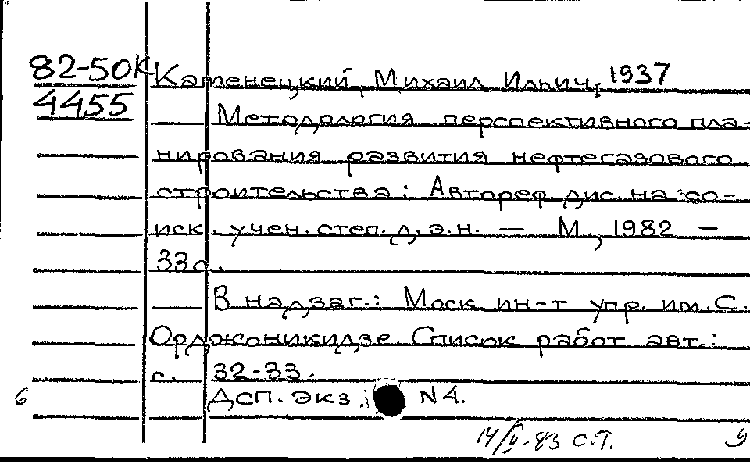 82-50К
4455
Каменецкий, Михаил Ильич, 1937
Методология перспективного пла-
нирования развития нефтегазового
строительства: Автореф дис. на со-
иск. учен. степ. д. э. н. — М., 1982 —
33с.
В надзаг.: Моск ин-т упр. им. С.
Орджоникидзе. Список работ авт.:
с. 32-33.
6 ДСП. экз. N4.
С.Т.